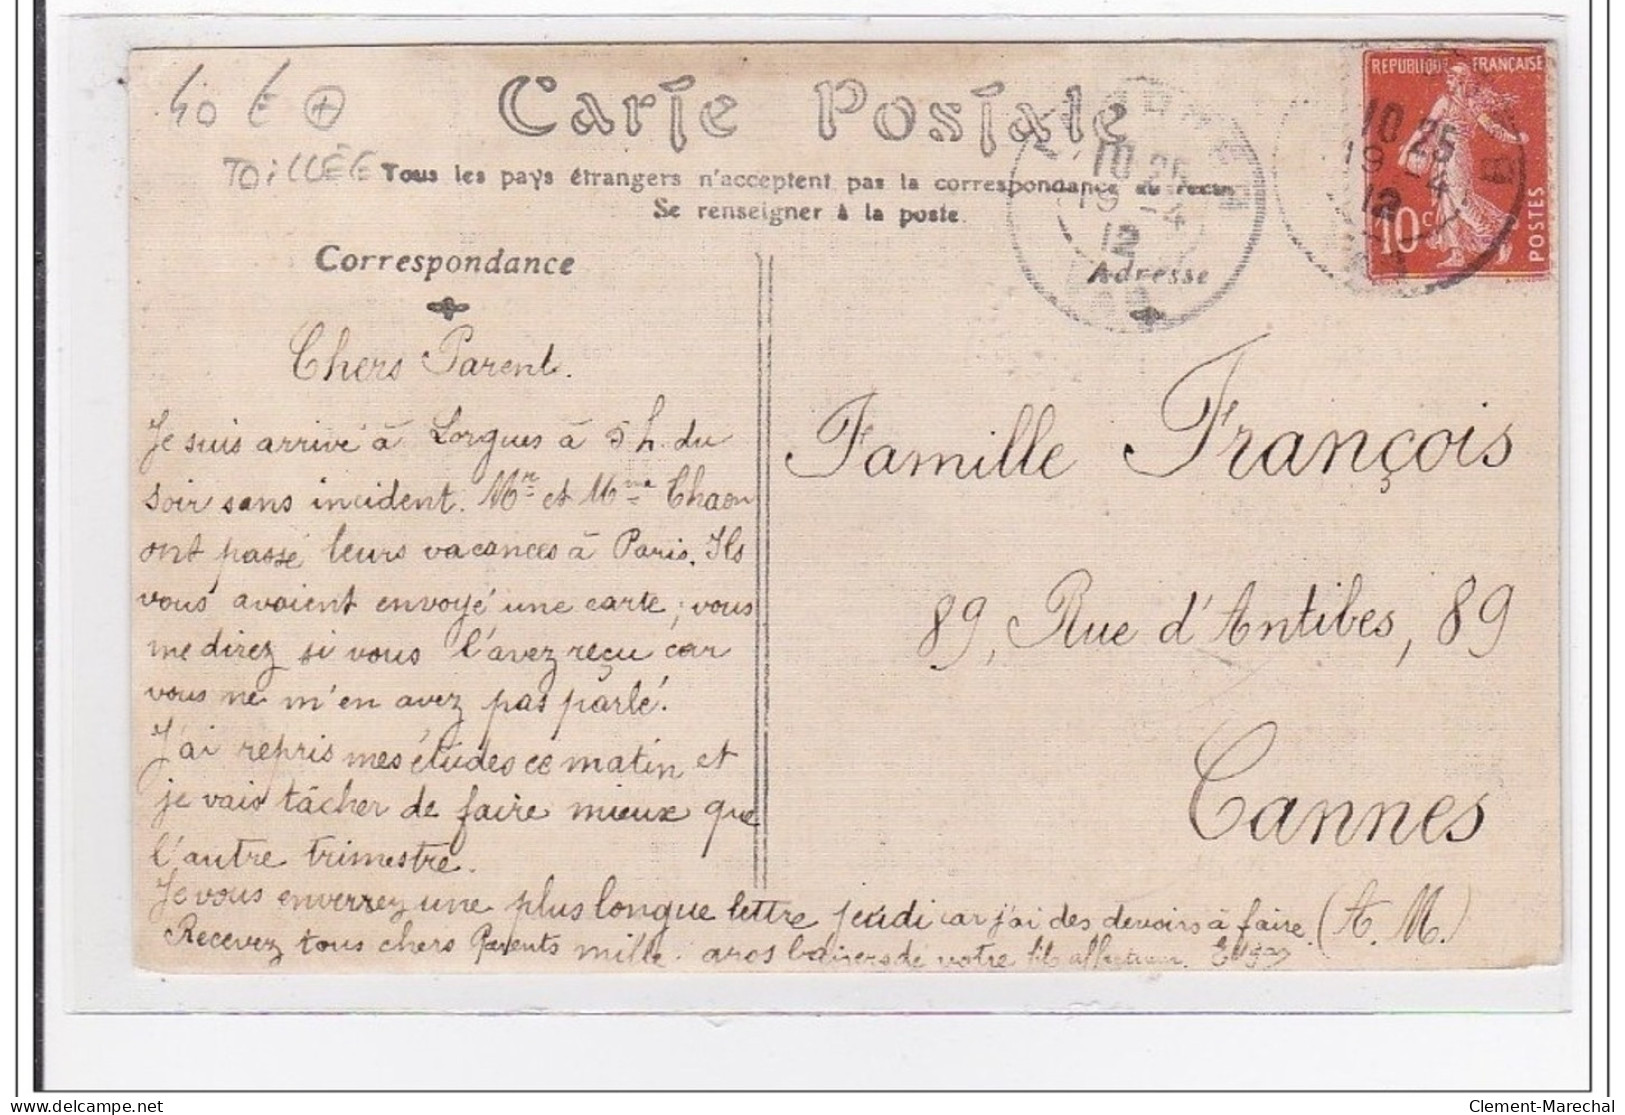 40 €
TOILLÉE
Carte Postale
Tous les pays étrangers n'acceptent pas la correspondance au recto
Se renseigner à la poste.
Correspondance
Adresse
REPUBLIQUE FRANÇAISE
10 c
POSTES
10 25
19 -4
12
10 25
19 -4
12
Chers Parent.
Je suis arrivé à Lorgues à 5 h. du
soir sans incident. Mr et Mme Chaon
ont passé leurs vacances à Paris. Ils
vous avaient envoyé une carte; vous
me direz si vous l'avez reçu car
vous ne m'en avez pas parlé.
J'ai repris mes études ce matin et
je vais tâcher de faire mieux que
l'autre trimestre.
Je vous enverrez une plus longue lettre jeudi car j'ai des devoirs à faire.
Recevez tous chers Parents mille gros baisers de votre fils
Famille François
89, Rue d'Antibes, 89
Cannes
(A. M.)
Clement-Marechal